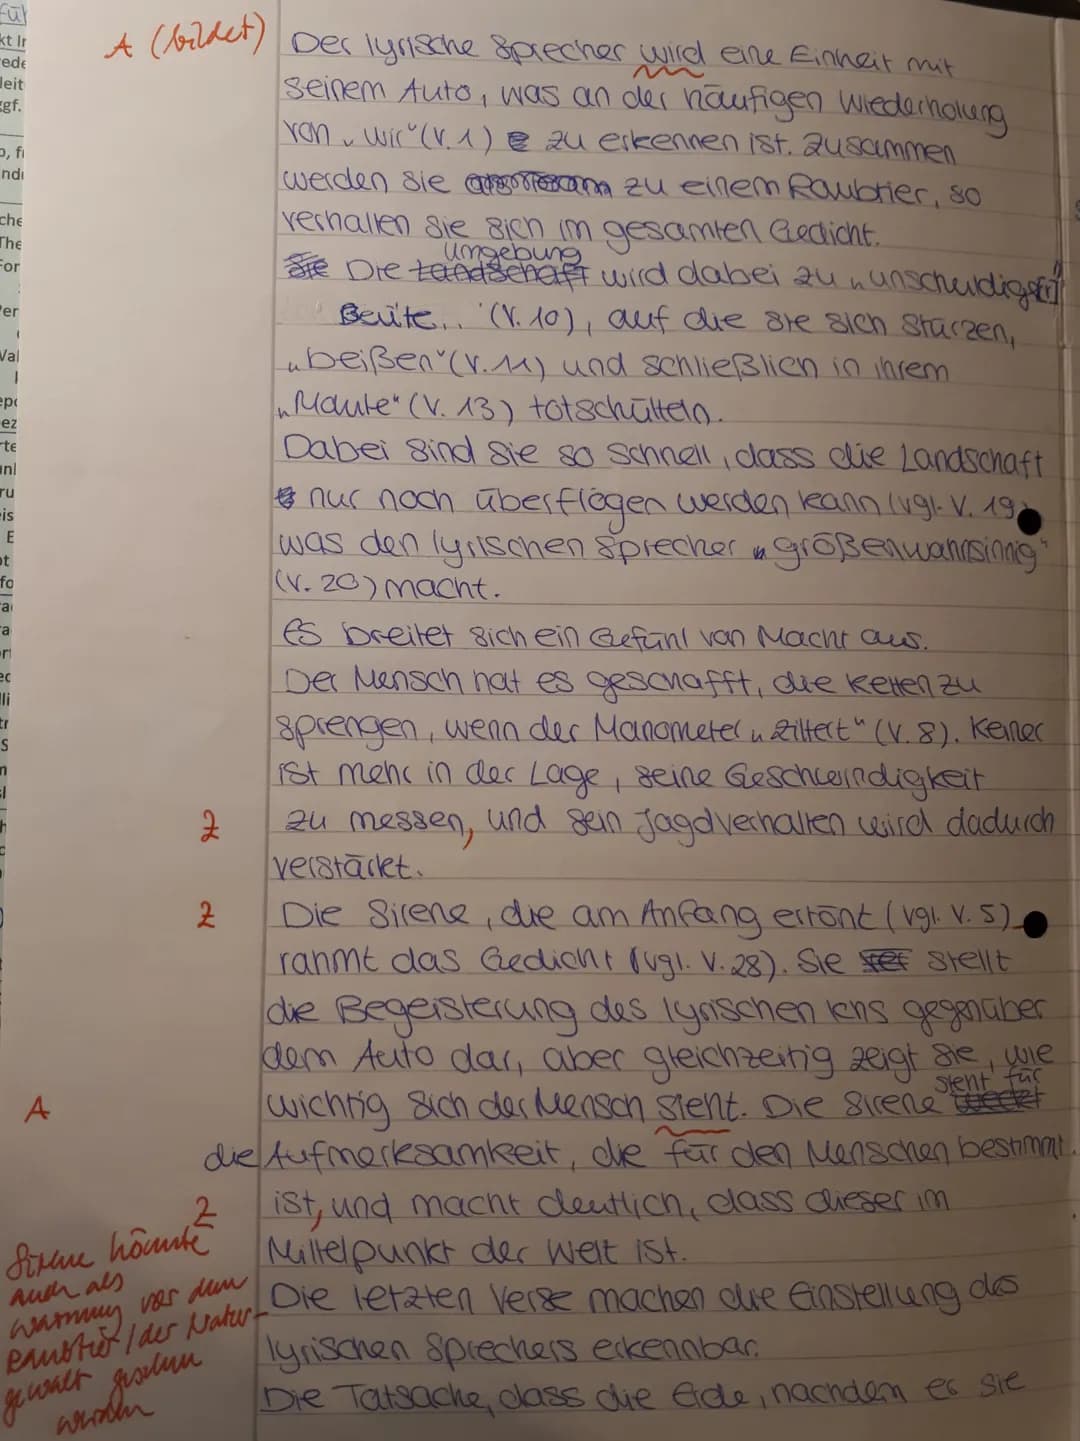 A (bildet)
Der lyrische Sprecher wird eine Einheit mit
seinem Auto, was an der häufigen Wiederholung
von „wir“ (V. 1) zu erkennen ist. Zusammen
werden sie zu einem Raubtier, so
verhalten sie sich im gesamten Gedicht.
Umgebung
Sie Die Landschaft wird dabei zu „unschuldige[r]
Beute.. “ (V. 10), auf die sie sich stürzen,
„beißen“ (V. 11) und schließlich in ihrem
„Maule“ (V. 13) totschütteln.
Dabei sind sie so schnell, dass die Landschaft
nur noch überflogen werden kann (vgl. V. 19)
was den lyrischen Sprecher „größenwahnsinnig“
(V. 20) macht.
Es breitet sich ein Gefühl von Macht aus.
Der Mensch hat es geschafft, die Ketten zu
sprengen, wenn der Manometer „zittert“ (V. 8). Keiner
ist mehr in der Lage, seine Geschwindigkeit
Z
zu messen, und sein Jagdverhalten wird dadurch
verstärkt.
Z
Die Sirene, die am Anfang ertönt (vgl. V. 5)
rahmt das Gedicht (vgl. V. 28). Sie stellt
die Begeisterung des lyrischen Ichs gegenüber
dem Auto dar, aber gleichzeitig zeigt sie, wie
steht für
A
wichtig sich der Mensch sieht. Die Sirene
die Aufmerksamkeit, die für den Menschen bestimmt
Z
ist, und macht deutlich, dass dieser im
Mittelpunkt der Welt ist.
Die letzten Verse machen die Einstellung des
lyrischen Sprechers erkennbar.
Die Tatsache, dass die Erde, nachdem er sie
Sirene könnte
auch als
Warnung vor dem
Raubtier / der Natur-
gewalt gesehen
werden